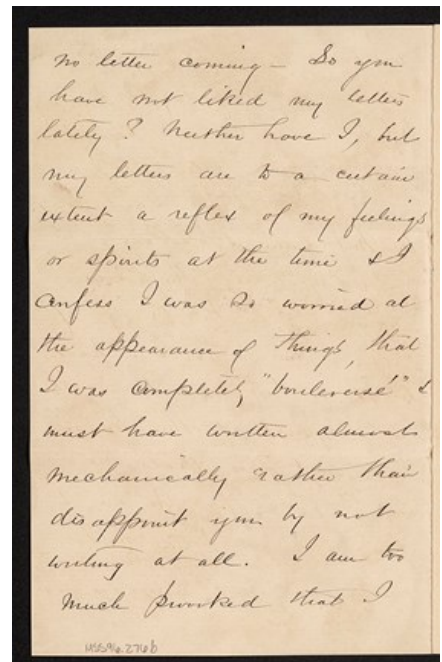 no letter coming – So you
have not liked my letters
lately? Neither have I, but
my letters are to a certain
extent a reflex of my feelings
or spirits at the time & I
confess I was so worried at
the appearance of things, that
I was completely "bouleversé" &
must have written almost
mechanically rather than
disappoint you by not
writing at all. I am too
much provoked that I